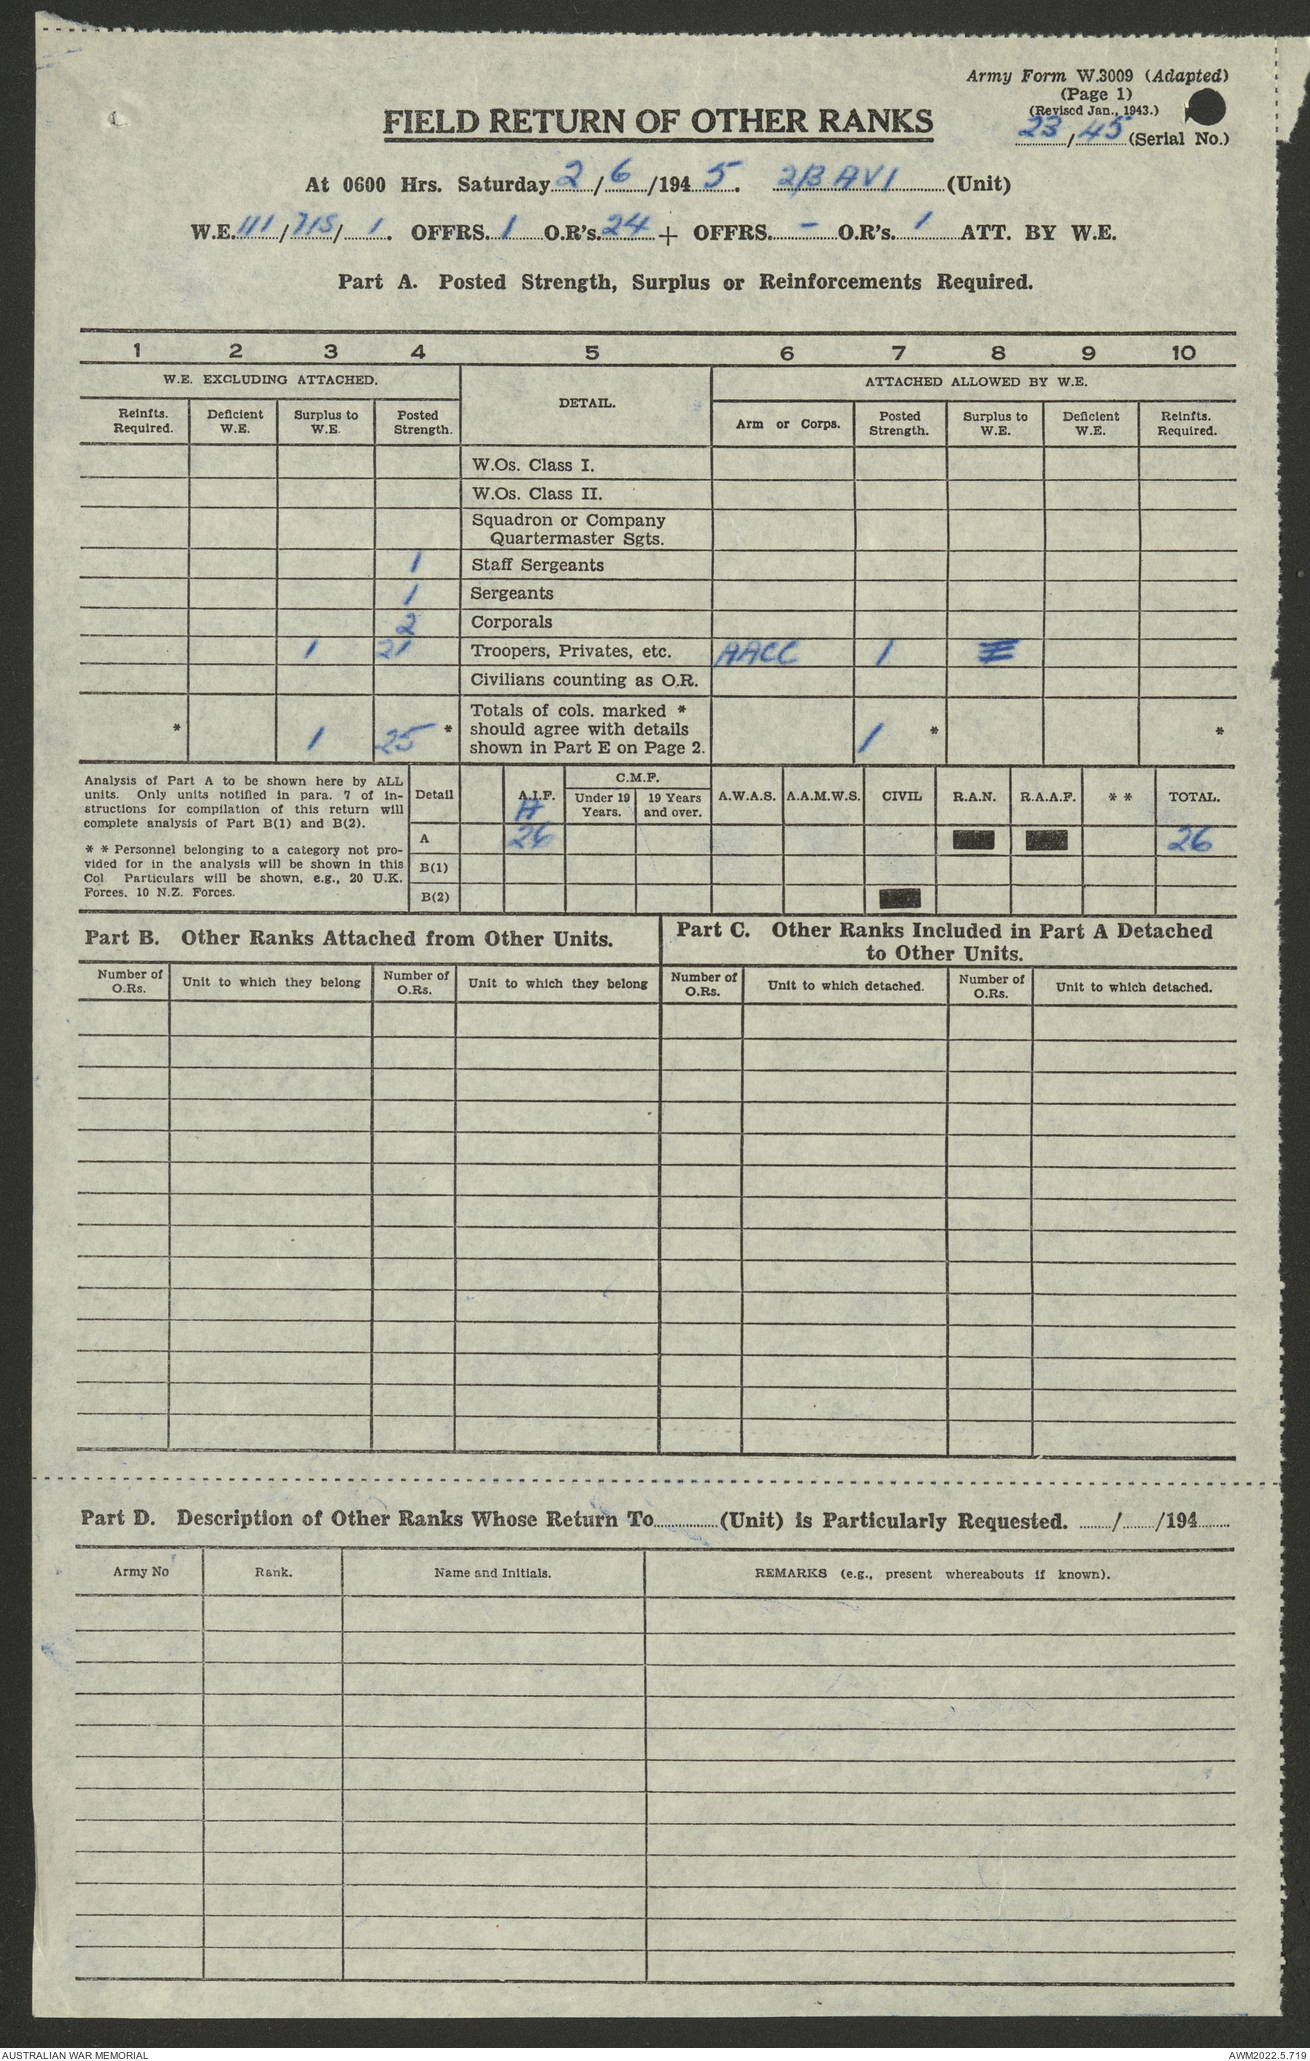 Army Form W.3009 (Adapted)
(Page 1)
(Revised Jan., 1943.)
23/45 (Serial No.)
FIELD RETURN OF OTHER RANKS
At 0600 Hrs. Saturday 2/6/1945. 2/3 AVI (Unit)
W.E. 111/715/1. OFFRS. 1 O.R's. 24 + OFFRS. - O.R's. 1 ATT. BY W.E.
Part A. Posted Strength, Surplus or Reinforcements Required.
1 2 3 4 5 6 7 8 9 10
W.E. EXCLUDING ATTACHED. DETAIL. ATTACHED ALLOWED BY W.E.
Reinfts. Required. Deficient W.E. Surplus to W.E. Posted Strength. Arm or Corps. Posted Strength. Surplus to W.E. Deficient W.E. Reinfts. Required.
W.Os. Class I.
W.Os. Class II.
Squadron or Company
Quartermaster Sgts.
1 Staff Sergeants
1 Sergeants
2 Corporals
1 21 Troopers, Privates, etc. AACC 1
Civilians counting as O.R.
Totals of cols. marked *
* 1 25 * should agree with details 1 * *
shown in Part E on Page 2.
Analysis of Part A to be shown here by ALL
units. Only units notified in para. 7 of in-
structions for compilation of this return will
complete analysis of Part B(1) and B(2).
* * Personnel belonging to a category not pro-
vided for in the analysis will be shown in this
Col Particulars will be shown, e.g., 20 U.K.
Forces. 10 N.Z. Forces.
Detail A.I.F. C.M.F. Under 19 Years. 19 Years and over. A.W.A.S. A.A.M.W.S. CIVIL R.A.N. R.A.A.F. * * TOTAL.
A 26 26
B(1)
B(2)
Part B. Other Ranks Attached from Other Units.
Part C. Other Ranks Included in Part A Detached
to Other Units.
Number of O.Rs. Unit to which they belong Number of O.Rs. Unit to which they belong Number of O.Rs. Unit to which detached. Number of O.Rs. Unit to which detached.
Part D. Description of Other Ranks Whose Return To (Unit) is Particularly Requested. / /194
Army No Rank. Name and Initials. REMARKS (e.g., present whereabouts if known).
AUSTRALIAN WAR MEMORIAL
AWM2022.5.719